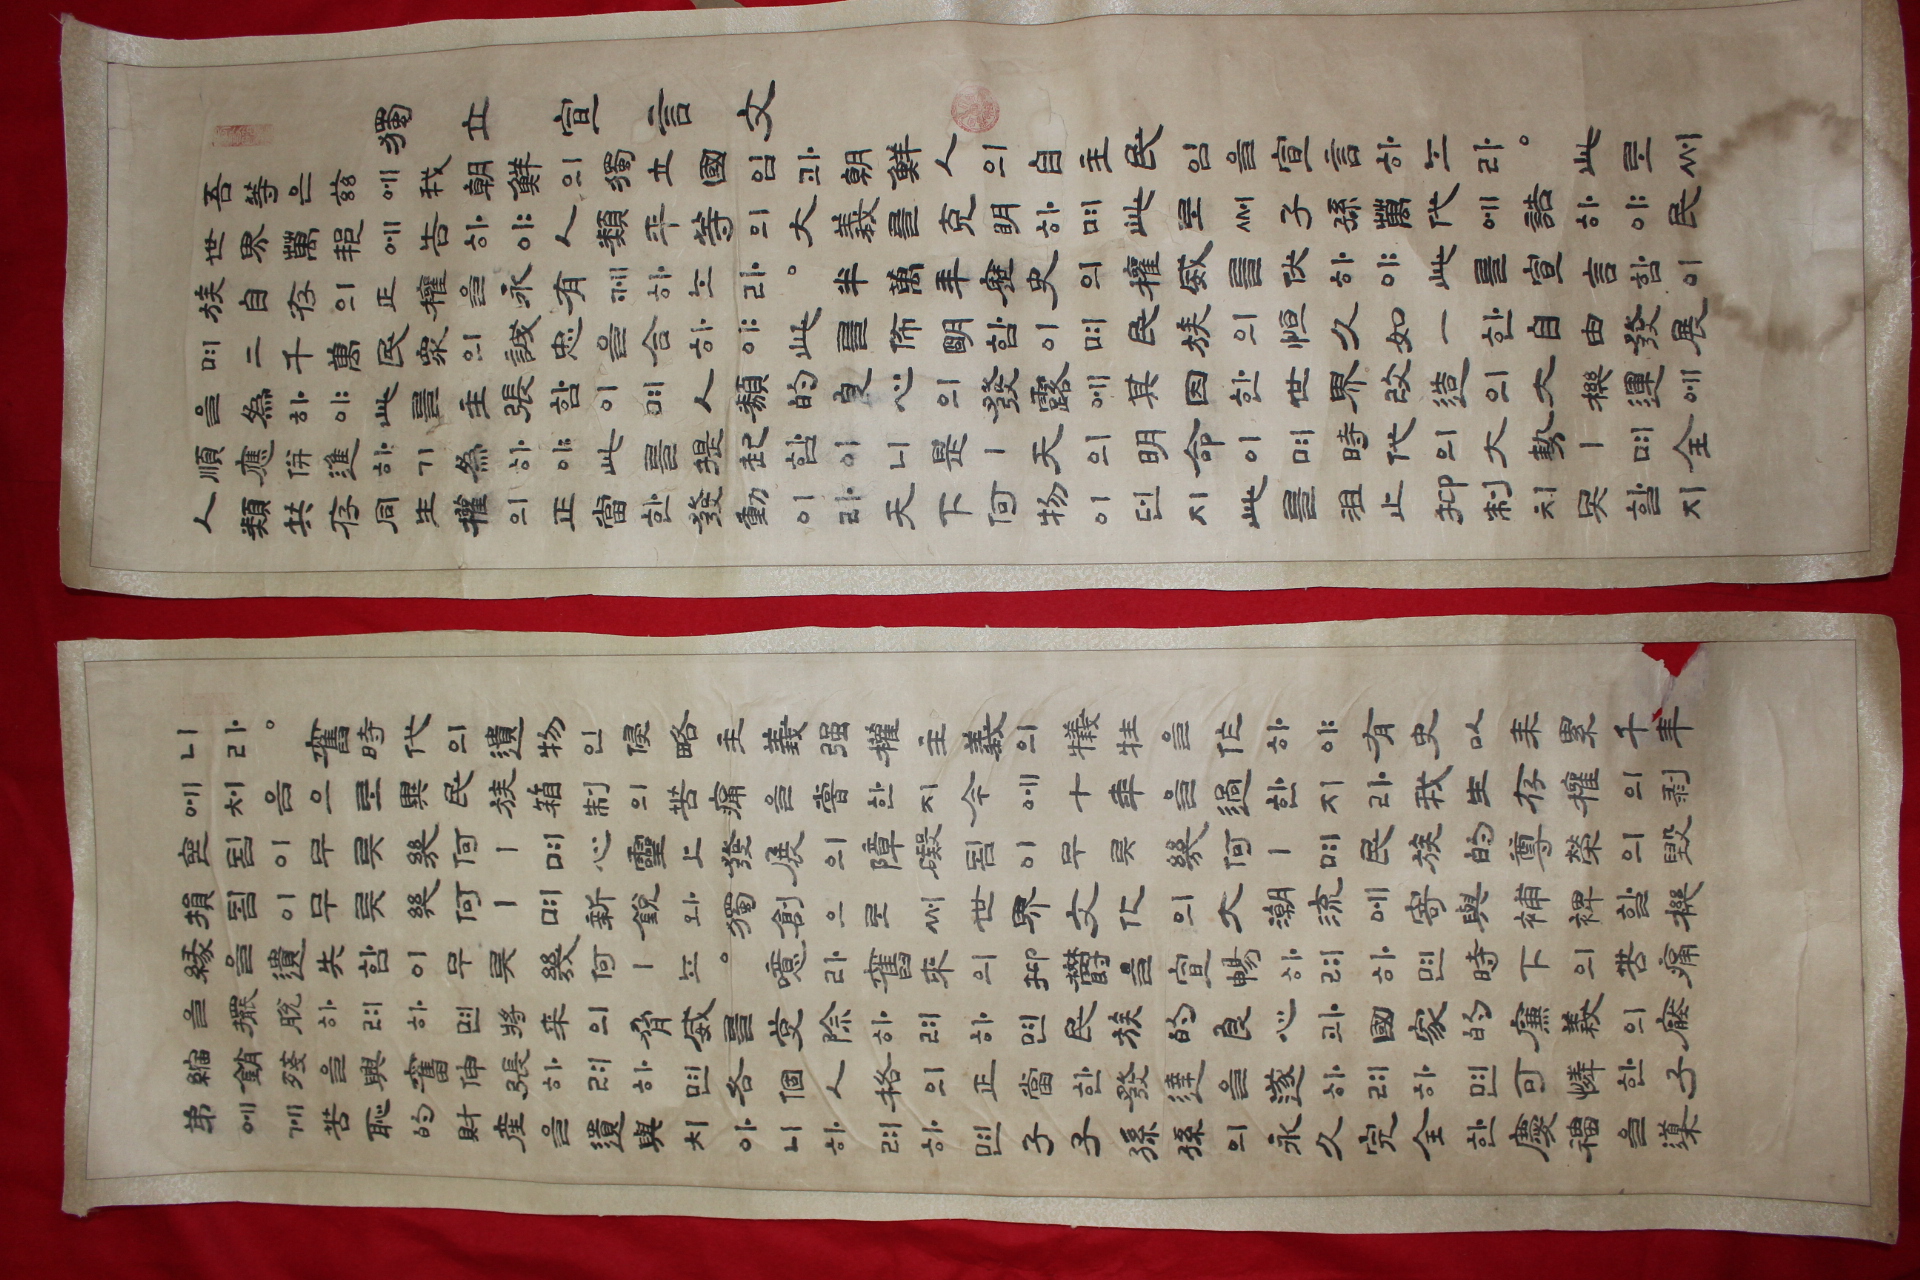 獨立宣言文
吾等은玆에我朝鮮의獨立國임과朝鮮人의自主民임을宣言하노라。此로써
世界萬邦에告하야人類平等의大義를克明하며此로써子孫萬代에誥하야民
族自存의正權을永有케하노라。半萬年歷史의權威를伏하야此를宣言함이
며二千萬民衆의誠忠을合하야此를佈明함이며民族의恒久如一한自由發展
을為하야此를主張함이며人類的良心의發露에其因한世界改造의大機運에
順應併進하기為하야此를提起함이니是ㅣ天의明命이며時代의大勢ㅣ며全
人類共存同生權의正當한發動이라天下何物이던지此를沮止抑制치못할지
니라。舊時代의遺物인侵略主義强權主義의犧牲을作하야有史以来累千年
에처음으로異民族箱制의苦痛을嘗한지今에十年을過한지라我生存權의剥
喪됨이무릇幾何ㅣ며心靈上發展의障礙됨이무릇幾何ㅣ며民族的尊榮의毀
損됨이무릇幾何ㅣ며新銳와獨創으로써世界文化의大潮流에寄與補裨할機
緣을遺失함이무릇幾何ㅣ뇨。噫라舊來의抑鬱을宣暢하려하면時下의苦痛
을擺脫하려하면將来의脅威를芟除하려하면民族的良心과國家的廉義의壓
縮銷殘을興奮伸張하려하면各個人格의正當한發達을遂하려하면可憐한子
弟에게苦恥的財産을遺與치아니하려하면子子孫孫의永久完全한慶福을導